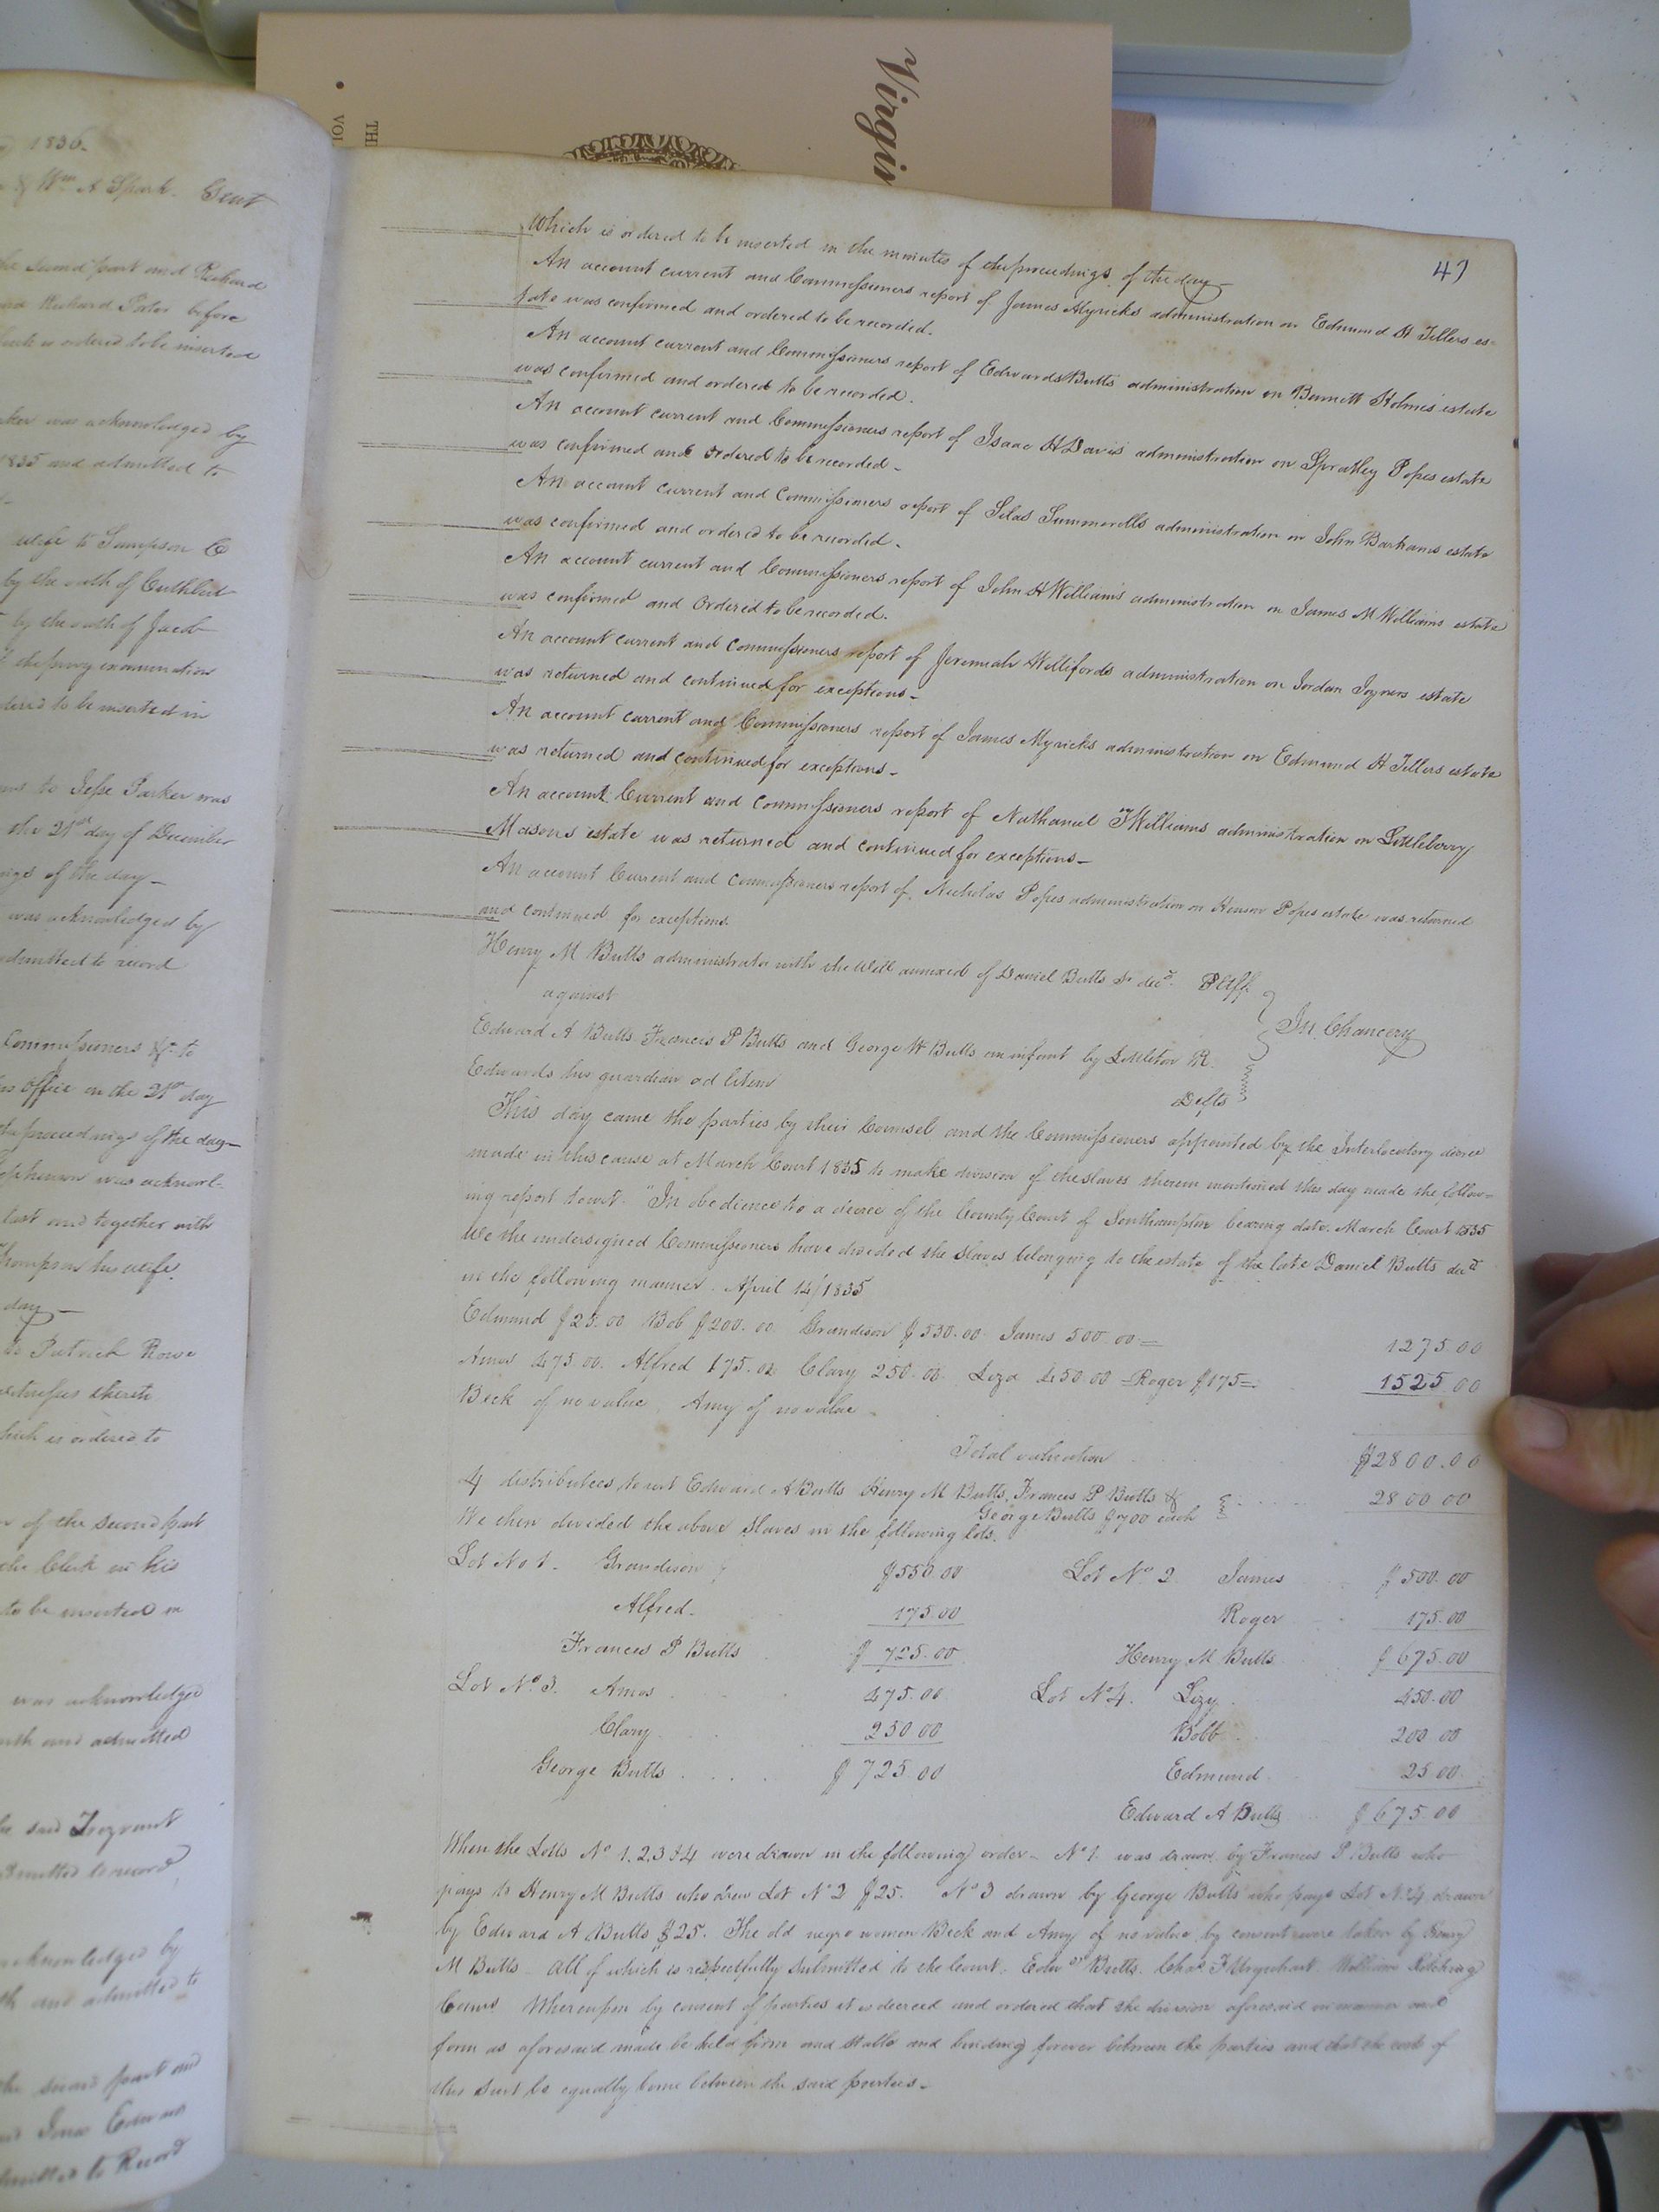 Virgin
TH
VOL
1836.
& Wm A Spark. Gent
the second part and Richard
Richard Porter before
which is ordered to be inserted
was acknowledged by
1835 and admitted to
wife to Sampson C
by the oath of Cuthbert
by the oath of Jacob
the privy examination
ordered to be inserted in
to Jesse Parker was
the 21st day of December
of the day
was acknowledged by
admitted to record
Commissioners &c to
his office on the 21st day
the proceedings of the day
was acknowl-
last and together with
Thompson his wife
day
to Patrick Rowe
witnesses thereto
which is ordered to
of the second part
the Clerk in his
to be inserted in
was acknowledged
and admitted
the said Trezvant
admitted to record
acknowledged by
and admitted to
the second part and
and Jones Edwards
admitted to Record
47
Which is ordered to be inserted in the minutes of the proceedings of the day
An account current and Commissioners report of James Myricks administration on Edmund H Tillers es-
tate was confirmed and ordered to be recorded.
An account current and Commissioners report of Edwards Butts administration on Bennett Holmes estate
was confirmed and ordered to be recorded.
An account current and Commissioners report of Isaac H Davis administration on Spratley Popes estate
was confirmed and ordered to be recorded
An account current and Commissioners report of Silas Summerells administration on John Barhams estate
was confirmed and ordered to be recorded
An account current and Commissioners report of John H Williams administration on James M Williams estate
was confirmed and Ordered to be recorded.
An account current and Commissioners report of Jeremiah Willifords administration on Jordan Joyners estate
was returned and continued for exceptions
An account current and Commissioners report of James Myricks administration on Edmund H Tillers estate
was returned and continued for exceptions
An account Current and Commissioners report of Nathaniel T Williams administration on Littleberry
Masons estate was returned and continued for exceptions
An account Current and Commissioners report of Nicholas Popes administration on Henson Popes estate was returned
and continued for exceptions.
Henry M Butts administrator with the Will annexed of Daniel Butts Sr decd. Pltff
against
In Chancery
Edward A Butts Frances P Butts and George W Butts an infant by Littleton R.
Edwards his guardian ad litem
Defts
This day came the parties by their Counsel and the Commissioners appointed by the Interlocutory decree
made in this cause at March Court 1835 to make division of the slaves therein mentioned this day made the follow-
ing report towit "In obedience to a decree of the County Court of Southampton bearing date March Court 1835
We the undersigned Commissioners have divided the slaves belonging to the estate of the late Daniel Butts decd
in the following manner. April 14/1835
Edmund $25.00 Bob $200.00 Grandison $550.00 James 500.00= 1275 00
Amos 475.00. Alfred 175.00 Clary 250.00 Liza 450.00 Roger $175= 1525.00
Beck of no value Amy of no value
Total valuation $2800.00
4 distributees to wit Edward A Butts Henry M Butts, Frances P Butts & 2800 00
George Butts $700 each
We then divided the above slaves in the following lots.
Lot No 1. Grandison $550.00 Lot No 2 James $500.00
Alfred. 175.00 Roger 175.00
Frances P Butts $725.00 Henry M Butts $675.00
Lot No 3. Amos 475.00 Lot No 4. Lizy 450.00
Clary 250 00 Bobb 200 00
George Butts $725 00 Edmund 25 00
Edward A Butts $675.00
When the Lotts No 1, 2, 3 & 4 were drawn in the following order No 1 was drawn by Frances P Butts who
pays to Henry M Butts who drew Lot No 2 $25. No 3 drawn by George Butts who pays Lot No 4 drawn
by Edward A Butts $25. The old negro women Beck and Amy of no value by consent were taken by Henry
M Butts All of which is respectfully submitted to the Court. Edwds Butts. Chas F Urquhart William Kitching
Coms Whereupon by consent of parties it is decreed and ordered that the division aforesaid in manner and
form as aforesaid made be held firm and stable and binding forever between the parties and that the cost of
this suit be equally borne between the said parties